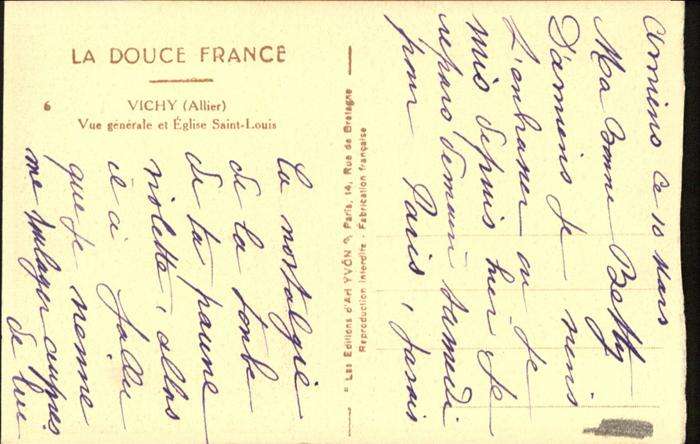 LA DOUCE FRANCE
6 VICHY (Allier)
Vue générale et Église Saint-Louis
"Les Editions d'Art YVON", Paris, 14, Rue de Bretagne
Reproduction interdite - Fabrication française
Amiens ce 10 Mars
Ma bonne Betty
D'amiens je viens
t'embrasser ou je
suis depuis hier je
repars demain samedi
pour Paris, j'avais
la nostalgie
de la tombe
de ta pauvre
violette, alors
il a fallu
que je vienne
me soulager auprès
de